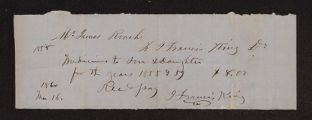 Mr James Roach
1858 To J Francis King Dr
Medicines to Son & Daughter
for the years 1858 & 59 $8.00
1860
Mar 16. Recd pay
J Francis King